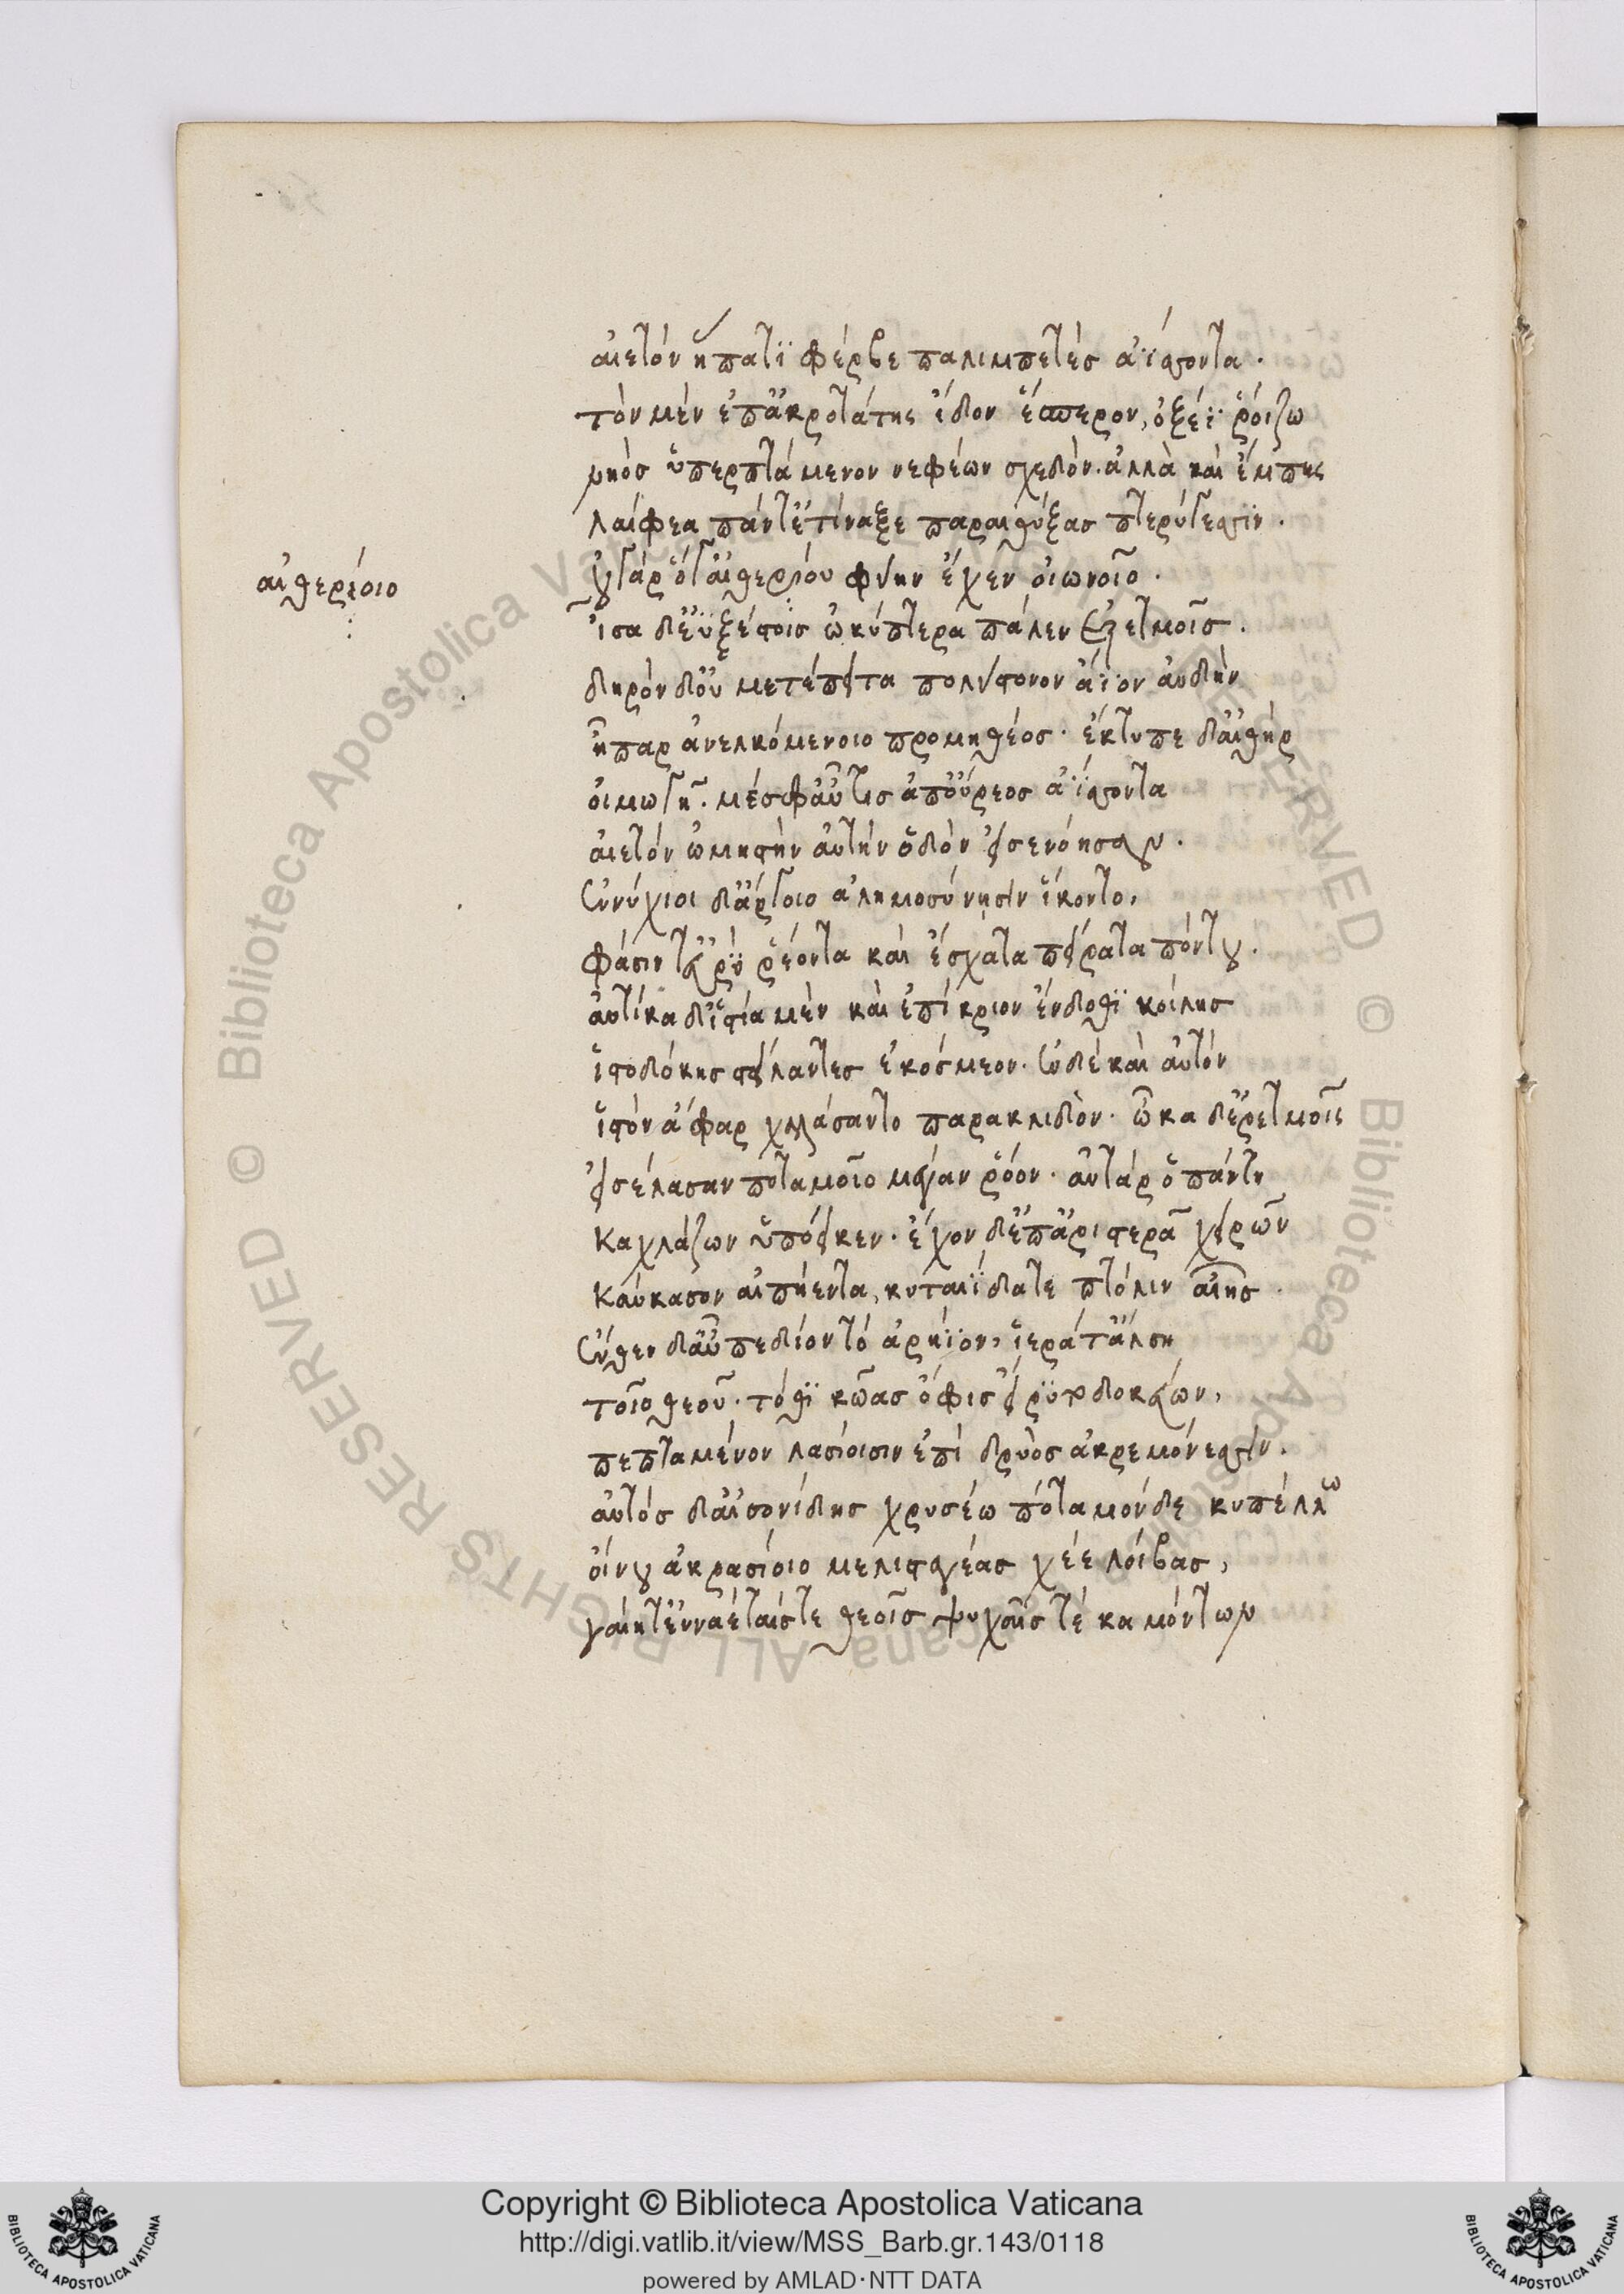 αἰετὸν ἥπατϊ φέρβε παλιμπετὲς ἀΐσσοντα.
τὸν μὲν ἐπ᾽ ἀκροτάτης ἴδον ἕσπερον, ὀξέϊ ῥοίζω
νηὸς ὑπερπτάμενον νεφέων σχεδόν. ἀλλὰ καὶ ἔμπης
λαίφεα πάντ᾽ ἐτίναξε παραιθύξας πτερύγεσσϊν.
οὐ γὰρ ὅγ᾽ αἰθερίου φύην ἔχεν οἰωνοῖο.
αἰθερίοιο
ἶσα δ᾽ ἐϋξέστοις ὠκύπτερα πάλεν ἐρετμοῖς.
δηρὸν δ᾽ οὐ μετέπειτα πολύστονον ἄϊον αὐδὴν
ἧπαρ ἀνελκόμενοιο προμηθέος. ἔκτυπε δ᾽ αἰθὴρ
οἰμωγῆ. μέσφ᾽ αὖτις ἀπ᾽ οὔρεος ἀΐσσοντα
αἰετὸν ὠμηστὴν αὐτὴν ὁδὸν εἰσενόησαν.
ἐννύχιοι δ᾽ ἄργοιο ἀλημοσύνησϊν ἵκοντο,
φάσιν τ᾽ εὐρὺ ῥέοντα καὶ ἔσχατα πείρατα πόντου.
αὐτίκα δ᾽ ἱστία μὲν καὶ ἐπίκριον ἔνδοθϊ κοίλης
ἱστοδόκης στείλαντες ἐκόσμεον. ἐν δὲ καὶ αὐτὸν
ἱστὸν ἄφαρ χαλάσαντο παρακλιδόν. ὦκα δ᾽ ἐρετμοῖς
εἰσέλασαν ποταμοῖο μέγαν ῥόον. αὐτὰρ ὁ πάντη
καχλάζων ὑπόεικεν. ἔχον δ᾽ ἐπ᾽ ἀριστερᾶ χειρῶν
καύκασον αἰπήεντα, κυταιΐδα τε πτόλιν αἴης.
ἔνθεν δ᾽ αὖ πεδίον τὸ ἀρήϊον, ἱερά τ᾽ ἄλση
τοῖο θεοῦ. τόθϊ κῶας ὄφις εἴρϋτο δοκεύων,
πεπτάμενον λασίοισιν ἐπὶ δρυὸς ἀκρεμόνεσσϊν.
αὐτὸς δ᾽ αἰσονίδης χρυσέω ποταμόνδε κυπέλλω
οἴνου ἀκρασίοιο μελισταγέας χέε λοίβας,
γαίη τ᾽ ἐνναέταις τε θεοῖς ψυχαῖς τὲ καμόντων
Copyright © Biblioteca Apostolica Vaticana
http://digi.vatlib.it/view/MSS_Barb.gr.143/0118
powered by AMLAD·NTT DATA